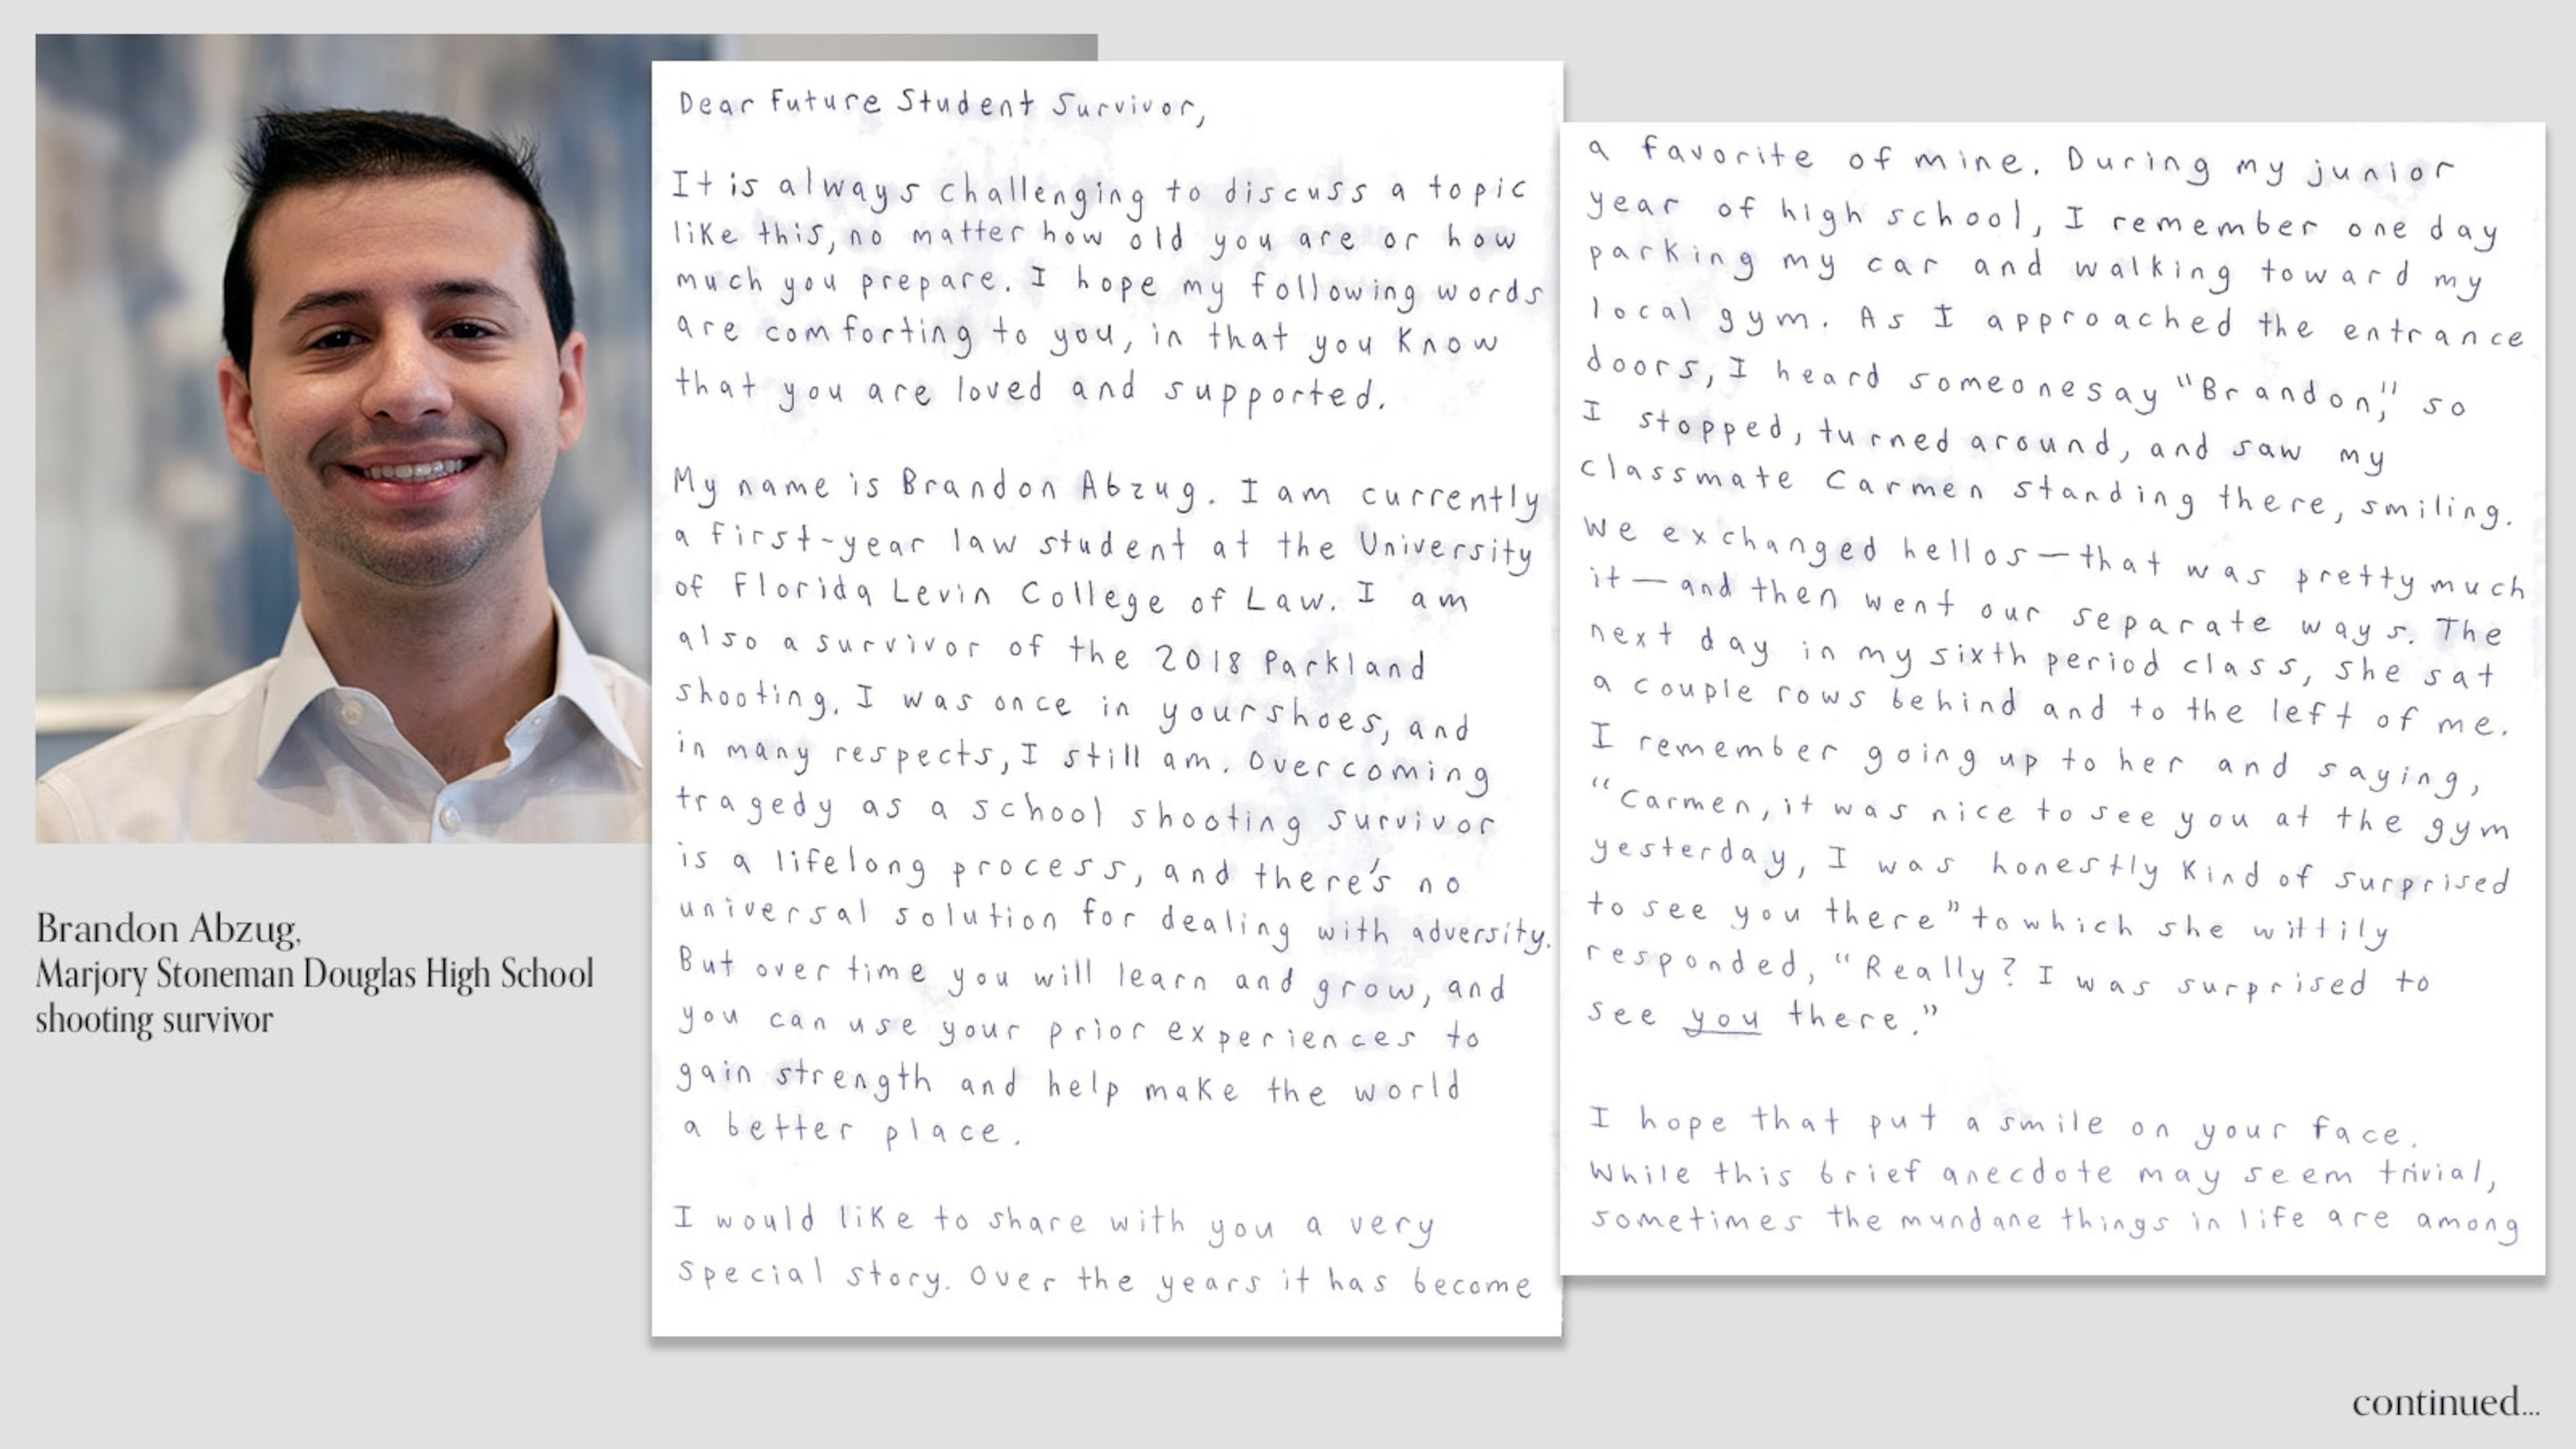 Dear Future Student Survivor,
It is always challenging to discuss a topic
like this, no matter how old you are or how
much you prepare. I hope my following words
are comforting to you, in that you know
that you are loved and supported.
My name is Brandon Abzug. I am currently
a first-year law student at the University
of Florida Levin College of Law. I am
also a survivor of the 2018 Parkland
shooting. I was once in your shoes, and
in many respects, I still am. Overcoming
tragedy as a school shooting survivor
is a lifelong process, and there's no
universal solution for dealing with adversity.
But over time you will learn and grow, and
you can use your prior experiences to
gain strength and help make the world
a better place.
I would like to share with you a very
special story. Over the years it has become
a favorite of mine. During my junior
year of high school, I remember one day
parking my car and walking toward my
local gym. As I approached the entrance
doors, I heard someone say "Brandon," so
I stopped, turned around, and saw my
classmate Carmen standing there, smiling.
We exchanged hellos—that was pretty much
it—and then went our separate ways. The
next day in my sixth period class, she sat
a couple rows behind and to the left of me.
I remember going up to her and saying,
"Carmen, it was nice to see you at the gym
yesterday, I was honestly kind of surprised
to see you there" to which she wittily
responded, "Really? I was surprised to
see you there."
I hope that put a smile on your face.
While this brief anecdote may seem trivial,
sometimes the mundane things in life are among
Brandon Abzug,
Marjory Stoneman Douglas High School
shooting survivor
continued...